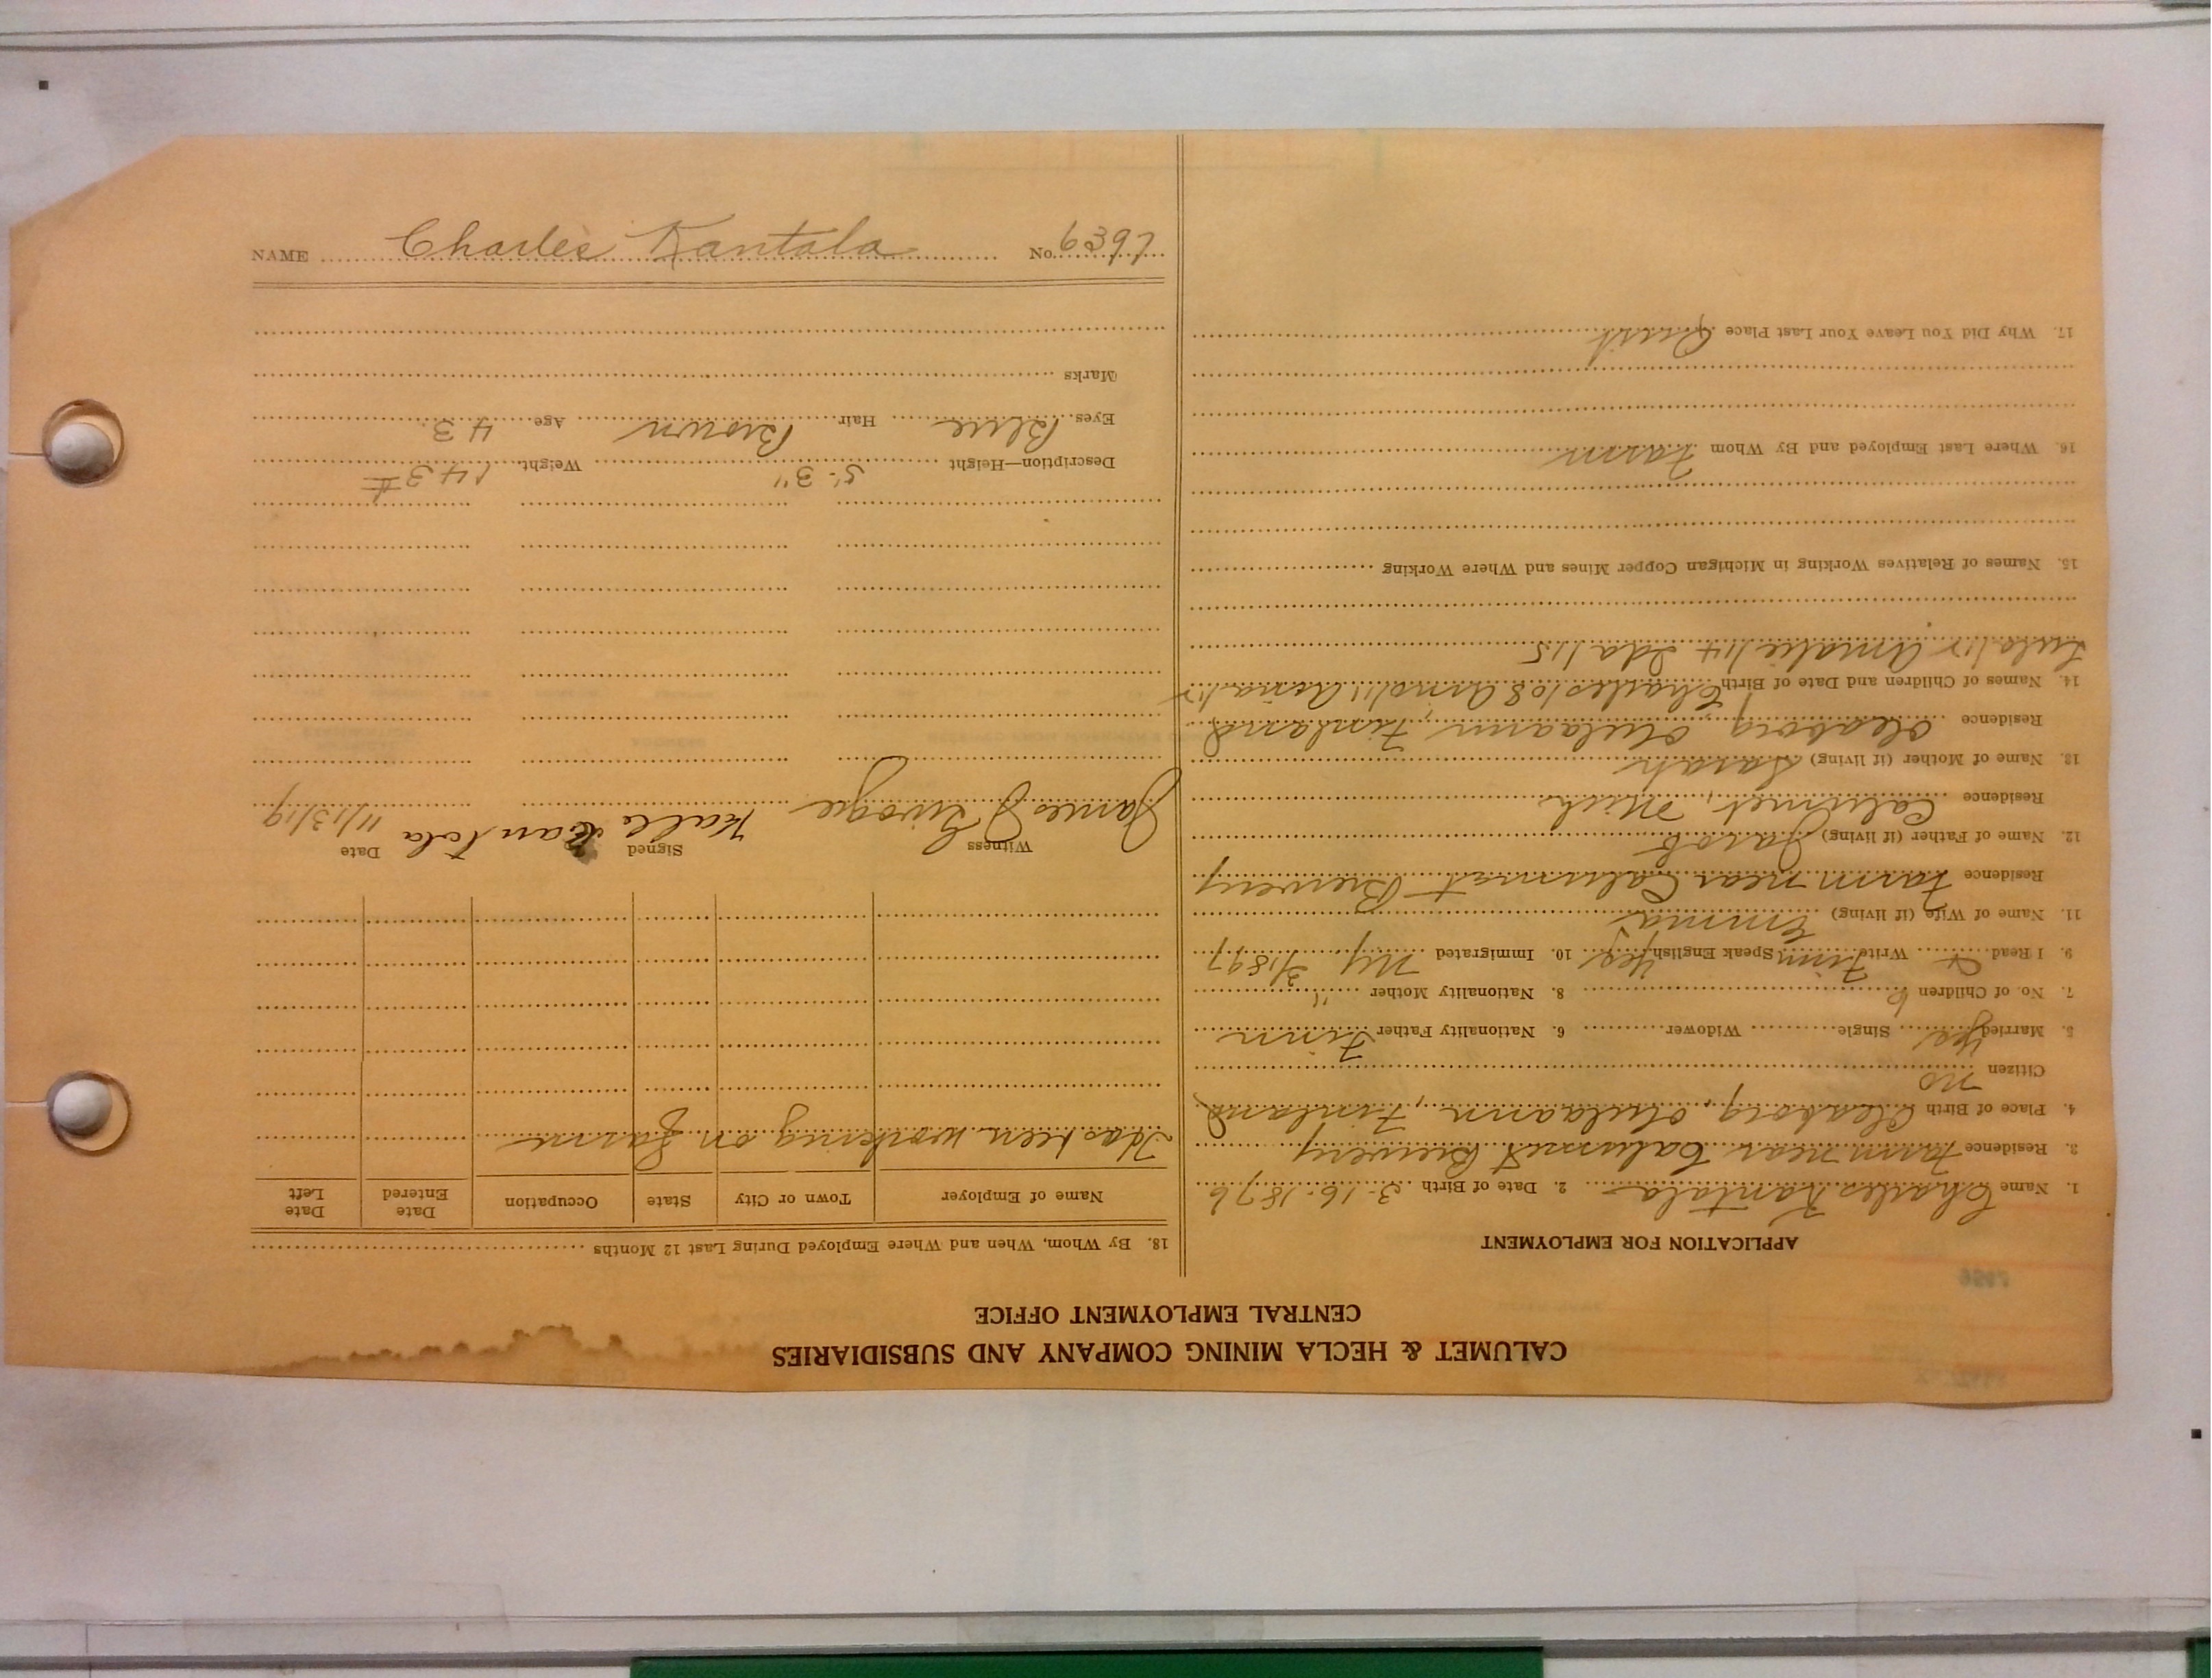 CALUMET & HECLA MINING COMPANY AND SUBSIDIARIES
CENTRAL EMPLOYMENT OFFICE
APPLICATION FOR EMPLOYMENT
1. Name Charles Kantala 2. Date of Birth 3-16-1876
3. Residence Farm near Calumet Brewery
4. Place of Birth Oleaborg, Oulaann, Finland
Citizen no
5. Married Yes Single Widower 6. Nationality Father Finn
7. No. of Children 6 8. Nationality Mother "
9. I Read & Write Finn Speak English Yes 10. Immigrated NY 3/1897
11. Name of Wife (if living) Emma
Residence Farm near Calumet Brewery
12. Name of Father (if living) Jacob
Residence Calumet, Mich
13. Name of Mother (if living) Sarah
Residence Oleaborg, Oulaann, Finland
14. Names of Children and Date of Birth Charles 108 Arno 111
112 Amalie 114 Ida 115
15. Names of Relatives Working in Michigan Copper Mines and Where Working
16. Where Last Employed and By Whom Farm
17. Why Did You Leave Your Last Place Quit
18. By Whom, When and Where Employed During Last 12 Months
Name of Employer Town or City State Occupation Date Entered Date Left
Has been working on farm
Witness Signed Kalle Kantola Date 11/13/19
James J
Description—Height 5'-3" Weight 143 #
Eyes Blue Hair Brown Age 43
Marks
NAME Charles Kantala No. 6397